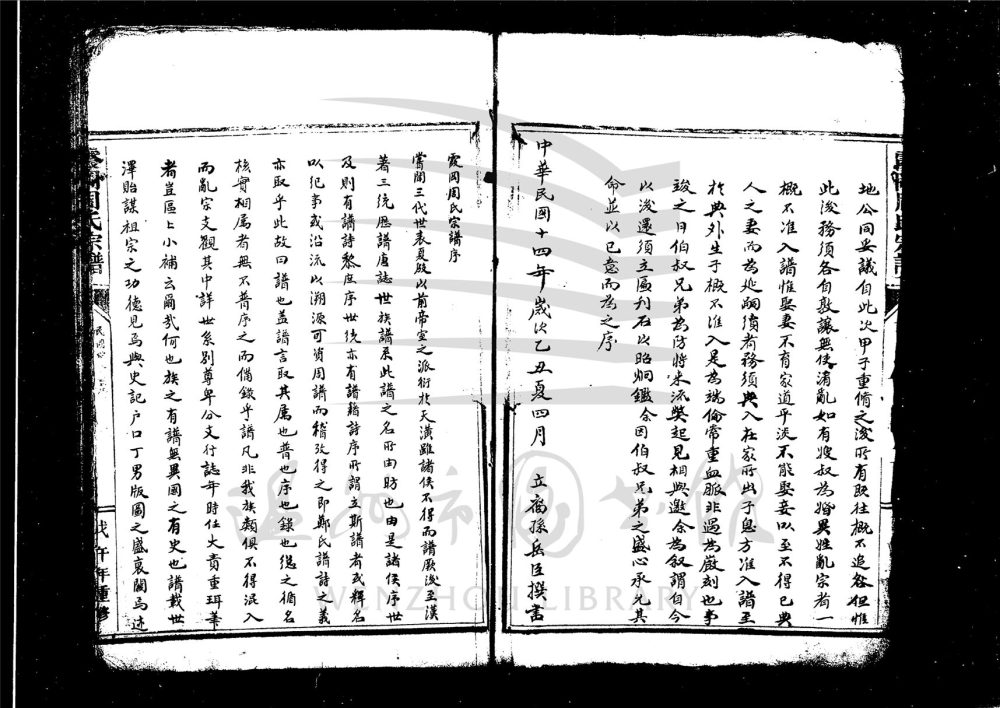 地公同妥議自此次甲子重脩之後所有既往概不追咎但惟
此後務須各自敦讓無使淆亂如有嫂叔為婚異姓亂宗者一
概不准入譜惟娶妻不育家道乎淡不能娶妾以至不得已典
人之妻而為延嗣續者務須典入在家所出子息方准入譜至
於典外生子概不准入是為端倫常重血脈非過為嚴刻也事
竣之日伯叔兄弟為防將來流獘起見相與邀余為叙謂自今
以後還須立區刊石以昭烱鑑余因伯叔兄弟之盛心承允其
命並以己意而為之序
中華民國十四年歲次乙丑夏四月 立裔孫岳臣撰書
霞岡周氏宗譜序
嘗聞三代世表夏殷以前帝室之派衍於天潢雖諸侯不得而譜厥後至漢
著三統厯譜唐誌世族譜系此譜之名所由昉也由是諸侯序世
及則有譜詩黎庶序世統亦有譜籍詩序所謂立斯譜者或釋名
以紀事或沿流以溯源可貭周譜而稽攷得之即鄭氏譜詩之義
亦取乎此故曰譜也盖譜言取其属也普也序也錄也緫之循名
核實相属者無不普序之而偹錄乎譜凡非我族類俱不得混入
而亂宗支觀其中詳世系別尊卑分支行誌年時任大責重珥筆
者豈區區小補云爾哉何也族之有譜無異國之有史也譜載世
澤貽謀祖宗之功德見焉與史記户口丁男版圖之盛衰關焉述
周氏宗譜
民國
戊午年重修
WENZHOU LIBRARY